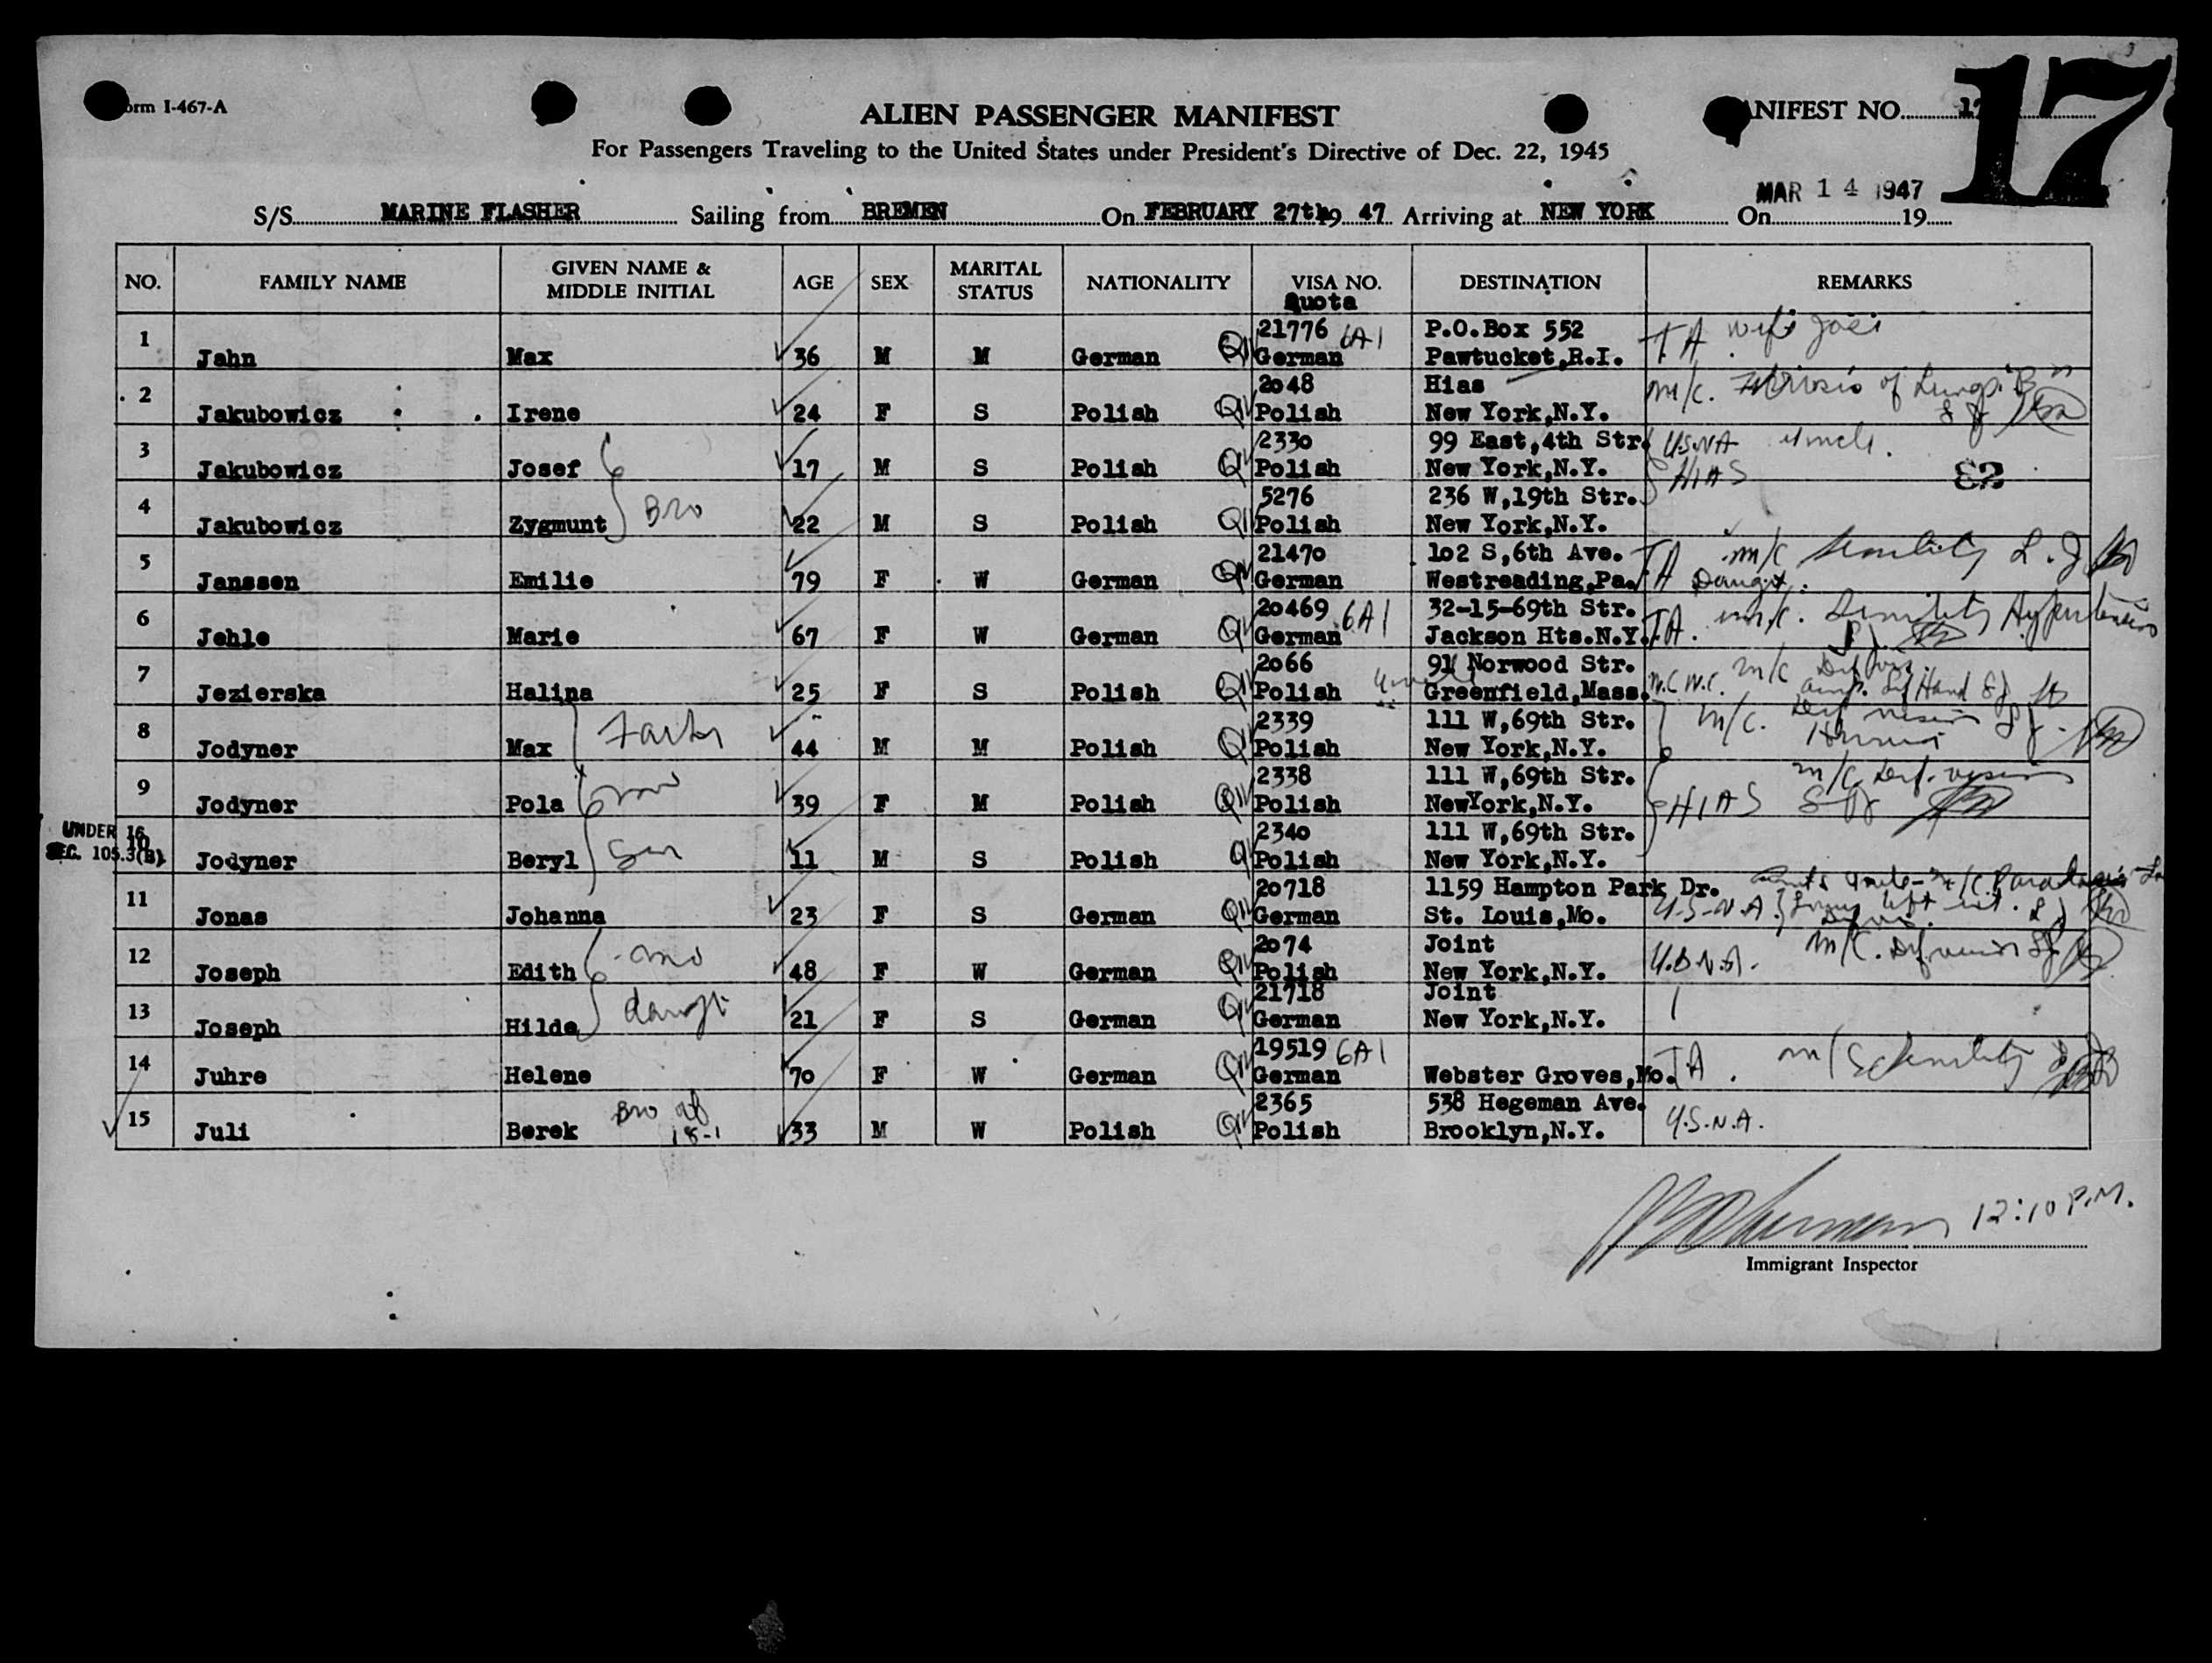 orm I-467-A
ALIEN PASSENGER MANIFEST
ANIFEST NO. 17
17
For Passengers Traveling to the United States under President's Directive of Dec. 22, 1945
MAR 14 1947
S/S MARINE FLASHER Sailing from BREMEN On FEBRUARY 27th 19 47 Arriving at NEW YORK On 19
NO. FAMILY NAME GIVEN NAME & MIDDLE INITIAL AGE SEX MARITAL STATUS NATIONALITY VISA NO. Quota DESTINATION REMARKS
21776 6A1 P.O.Box 552 T.A. wife
1 Jahn Max 36 M M German German Pawtucket,R.I.
2048 Hias m/c. of Lungs
2 Jakubowicz Irene 24 F S Polish Polish New York,N.Y.
2330 99 East,4th Str. USNA uncle.
3 Jakubowicz Josef 17 M S Polish Polish New York,N.Y. HIAS 82
5276 236 W,19th Str.
4 Jakubowicz Zygmunt Bro 22 M S Polish Polish New York,N.Y.
21470 102 S,6th Ave. TA m/c Senility
5 Janssen Emilie 79 F W German German Westreading,Pa. Daught.
20469 6A1 32-15-69th Str. T.A. m/c. Senility Hypertension
6 Jehle Marie 67 F W German German Jackson Hts.N.Y.
2066 91 Norwood Str. m/c Def vis.
7 Jezierska Halina 25 F S Polish Polish Greenfield,Mass. Hand
2339 111 W,69th Str. m/c. Def vision
8 Jodyner Max Fath 44 M M Polish Polish New York,N.Y. Hernia
2338 111 W,69th Str. m/c Def. vision
9 Jodyner Pola mo 39 F M Polish Polish NewYork,N.Y. HIAS
UNDER 16 2340 111 W,69th Str.
SEC. 105.3(B) 10 Jodyner Beryl Son 11 M S Polish Polish New York,N.Y.
20718 1159 Hampton Park Dr. m/c
11 Jonas Johanna 23 F S German German St. Louis,Mo. U.S.N.A.
2074 Joint m/c. Def vision
12 Joseph Edith mo 48 F W German Polish New York,N.Y. U.S.N.A.
21718 Joint
13 Joseph Hilde daught 21 F S German German New York,N.Y.
19519 6A1 T.A. m/c Senility
14 Juhre Helene 70 F W German German Webster Groves,Mo.
2365 538 Hegeman Ave. U.S.N.A.
15 Juli Berek Bro of 18-1 33 M W Polish Polish Brooklyn,N.Y.
12:10 P.M.
Immigrant Inspector